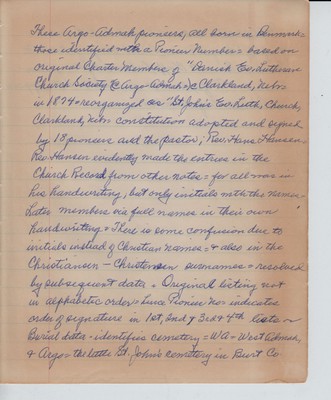 These Argo-Admah pioneers, all born in Denmark =
those identified with a Pioneer Number = based on
original Charter Members of "Danish Ev. Lutheran
Church Society (@ Argo-Admah) @ Clarkland, Nebr.
in 1874 = reorganized as "St. John's Ev. Luth. Church,
Clarkland, Nebr. constitution adopted and signed
by 18 pioneers and the pastor; Rev. Hans Hansen.
Rev. Hansen evidently made the entries in the
Church Record from other notes = for all was in
his handwriting, but only initials with the names =
Later members via full names in their own
handwriting = There is some confusion due to
initials instead of Christian names = & also in the
Christiansen - Christensen surnames = resolved
by subsequent data. Original listing not
in alphabetic order = hence Pioneer No. indicates
order of signature in 1st, 2nd & 3rd & 4th lists =
Burial data - identifies cemetery = WA = West Admah,
& Argo = the little St. John's cemetery in Burt Co.